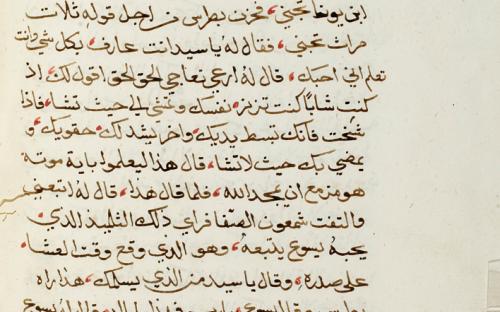 ابن يونا تحبني، فحزن بطرس من اجل قوله ثلات
مرات تحبني، فقال له يا سيد انت عارف بكل شي وانت
تعلم اني احبك، قال له ارعي نعاجي الحق الحق اقول لك، اذ
كنت شابًا كنت تزنر نفسك وتمشي الي حيث تشا، فاذا
شخت فانك تبسط يديك واخر يشد لك حقويك، و
يمضي بك حيث لا تشا، قال هذا ليعلموا باية موتة
هو مزمع ان يمجد الله، فلما قال هذا، قال له اتبعني
والتفت شمعون الصفا فراي ذلك التلميد الذي
يحبه يسوع يتبعه، وهو الدي وقع وقت العشا
علي صدره، وقال يا سيد من الذي يسلمك، هذا راه